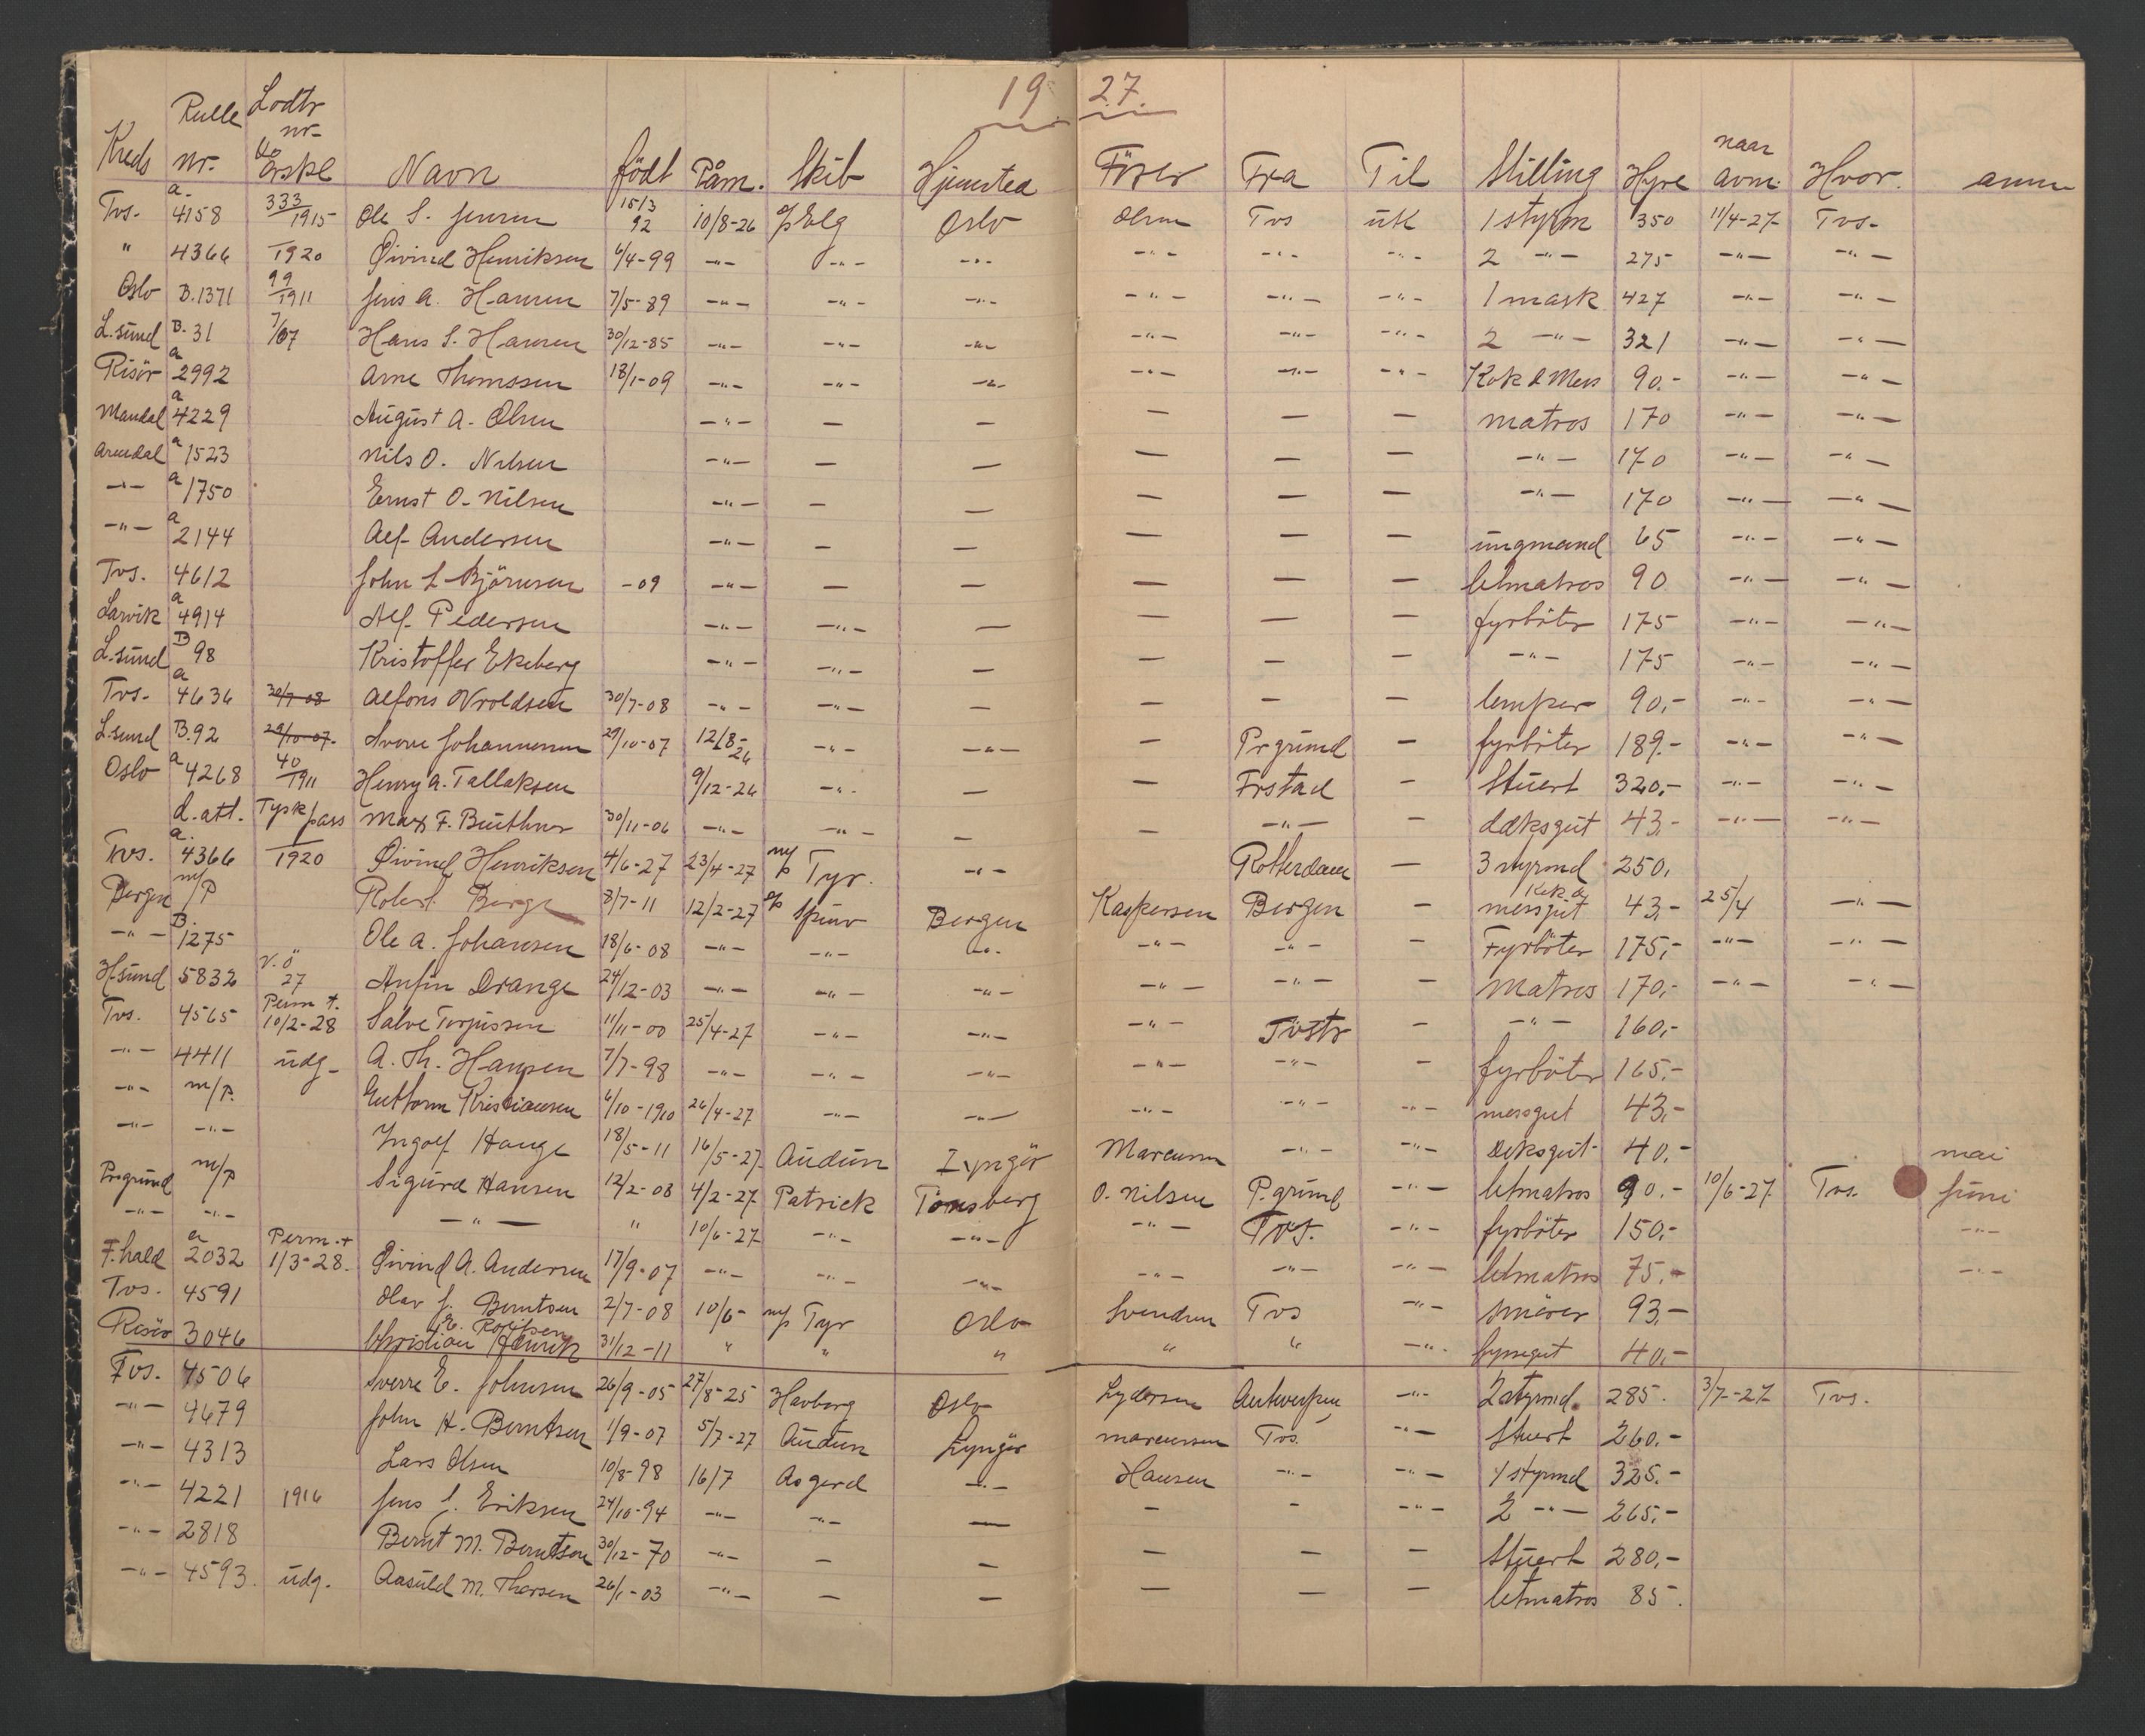 19 27.
Kreds Rulle nr. Lodtr nr. årskl Navn födt Påm. Skib Hjemsted Förer Fra Til Stilling Hyre naar avm. Hvor. anm
Tvs. a. 4158 333/1915 Ole S. Jensen 15/3 92 10/8-26 Elg Oslo Olsen Tvs utl 1 styrm 350 11/4-27 Tvs.
" 4366 1920 Øivind Henriksen 6/4-99 -"- -"- -"- -"- -"- -"- 2 -"- 275 -"- -"-
Oslo B.1371 99/1911 Jens A. Hansen 7/5-89 -"- -"- -"- -"- -"- -"- 1 mask 427 -"- -"-
L.sund B. 31 7/07 Hans S. Hansen 30/12-85 -"- -"- -"- -"- -"- -"- 2 -"- 321 -"- -"-
Risör a 2992 Arne Thomssen 18/1-09 -"- -"- -"- -"- -"- -"- Kok & Mess 90.- -"- -"-
Mandal a 4229 August A. Olsen -"- - - - - - matros 170 -"- -"-
Arendal a 1523 Nils O. Nilsen -"- - - - - - -"- 170 -"- -"-
-"- a 1750 Ernst O. Nilsen -"- - - - - - -"- 170 -"- -"-
-"- a 2144 Alf Andersen -"- - - - - - ungmand 65 -"- -"-
Tvs. 4612 John L Björnsen -09 -"- - - - - - letmatros 90 -"- -"-
Larvik a 4914 Alf. Pedersen -"- -"- - - - - fyrböter 175 -"- -"-
L.sund B 98 Kristoffer Ekeberg -"- -"- - - - - -"- 175 -"- -"-
Tvs. a 4636 30/7-08 Alfons Vroldsen 30/7-08 -"- -"- - - - lemper 90,- -"- -"-
L.sund B.92 29/10-07. Johannessen 29/10-07 12/8-26 -"- -"- - Prgrund - fyrböter 189.- -"- -"-
Oslo a 4268 40/1911 Henry A. Tallaksen 9/12-26 -"- - - Frstad - Stuert 320,- -"- -"-
d. att. Tysk pass Max F. 30/11-06 -"- -"- - - -"- - dæksgut 43,- -"- -"-
Tvs. a. 4366 1920 Øivind Henriksen 4/6-27 23/4-27 m/s Tyr. -"- Rotterdam - 3 styrmd 250,
Bergen m/P Robert Berge 8/7-11 12/2-27 Bergen Kaspersen Bergen - Kok & messgut 43,- 25/4 -"-
-"- B. 1275 Ole A. Johansen 18/6-08 -"- -"- -"- -"- -"- - Fyrböter 175,- -"- -"-
H.sund 5832 V.ö 27 Anfin Drange 24/12-03 -"- -"- -"- -"- -"- - Matros 170,- -"- -"-
Tvs. 4565 Perm t. 10/2-28 Salve Torjussen 11/11-00 25/4-27 -"- -"- -"- Tvstr - -"- 160,-
-"- 4411 udg. A. Th. Hansen 7/7-98 -"- -"- -"- -"- -"- - fyrböter 165.-
-"- m/P. Guttorm Kristiansen 6/10-1910 26/4-27 -"- -"- -"- -"- -"- messgut 43,-
-"- -"- Ingolf Hauge 18/5-11 16/5-27 Audun Lyngör Marcussen -"- -"- deksgut 40,- mai
Prsgrund m/P Sigurd Hansen 12/2-08 4/2-27 Patrick Tönsberg O. Nilsen P.grund -"- letmatros 90.- 10/6-27 Tvs. Juni
-"- -"- -"- " 10/6-27 -"- -"- -"- Tvs. -"- fyrböter 150,- -"-
F.hald a 2032 Perm.t 1/3-28. Øivind A. Andersen 17/9-07 -"- -"- -"- -"- -"- -"- letmatros 75,- -"-
Tvs. 4591 Olav J. Berntsen 2/7-08 10/6- m/s Tyr Oslo Svendsen Tvs -"- smörer 93,-
Risör 3046 Christian Henrik E. 31/12-11 " " " " " -"- byssegut 40,-
Tvs. 4506 Sverre E. Johnsen 26/9-05 27/8-25 Havborg Oslo Lydersen Antwerpen -"- 2 styrmd. 285. 3/7-27 Tvs.
-"- 4679 John H. Berntsen 1/9-07 5/7-27 Audun Lyngör Marcussen Tvs. -"- Stuert 260.-
-"- 4313 Lars Olsen 10/8-98 16/7 Asgerd -"- Hansen -"- -"- 1 styrmd 325.-
-"- 4221 1916 Jens J. Eriksen 24/10-94 -"- -"- - - - -"- 2 -"- 265,-
-"- 2818 Bernt M. Berntsen 30/12-70 -"- - - - - - Stuert 280,-
-"- 4593. udg. Aasuld M. Thorsen 26/1-03 -"- - - - - - letmatros 85.